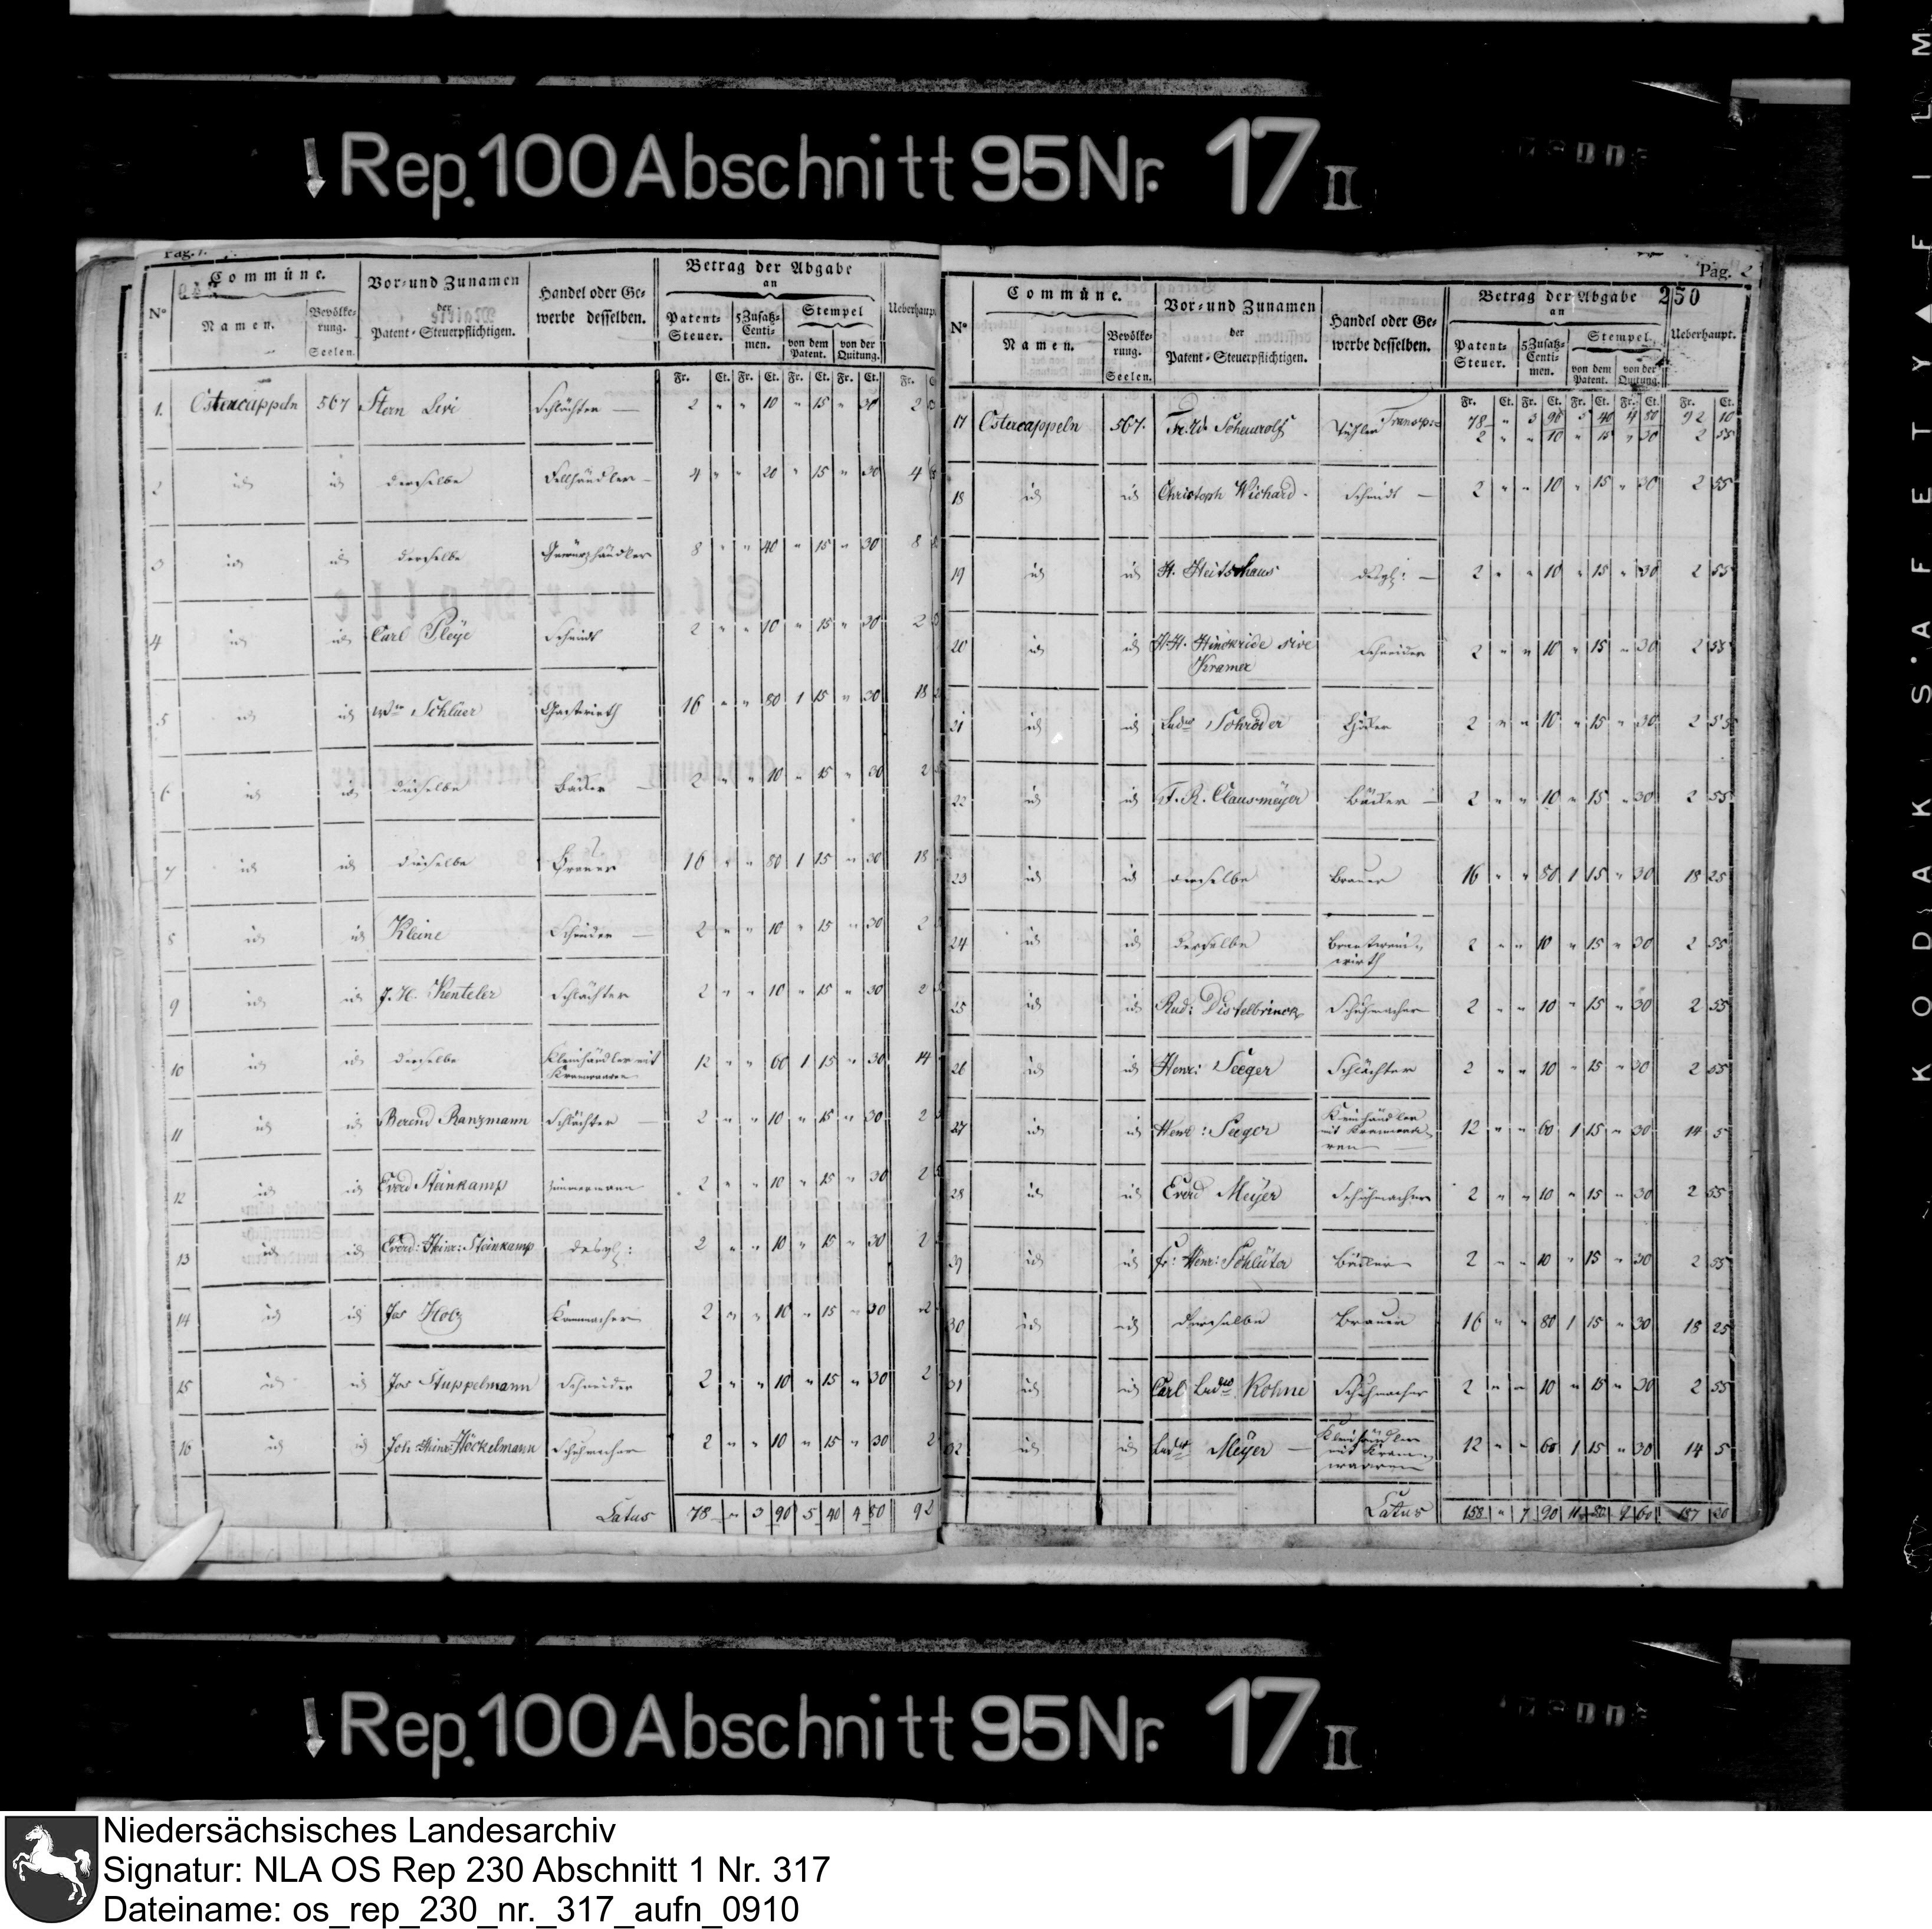 Rep. 100 Abschnitt 95 Nr. 17 II
Pag. 1.
N° Commüne. Namen. Bevölkerung. Seelen. Vor- und Zunamen der Patent-Steuerpflichtigen. Handel oder Gewerbe desselben. Betrag der Abgabe an Patent-Steuer. 5 Zusatz-Centimen. Stempel von dem Patent. von der Quitung. Ueberhaupt
Fr. Ct. Fr. Ct. Fr. Ct. Fr. Ct. Fr.
1. Ostercappeln 567 Stern Levi Schlächter — 2 " " 10 " 15 " 30 2
2 id id derselbe Fellhändler — 4 " " 20 " 15 " 30 4
3 id id derselbe Gewürzhändler 8 " " 40 " 15 " 30 8
4 id id Carl Pleÿe Schmidt 2 " " 10 " 15 " 30 2
5 id id Wwe Schlüer Gastwirth 16 " " 80 1 15 " 30 18
6 id id dieselbe Bäcker — 2 " " 10 " 15 " 30 2
7 id id dieselbe Brauer 16 " " 80 1 15 " 30 18
8 id id Kleine Schneider — 2 " " 10 " 15 " 30 2
9 id id J. H. Kenteler Schlächter 2 " " 10 " 15 " 30 2
10 id id derselbe Kleinhändler mit
Kramwaaren 12 " " 60 1 15 " 30 14
11 id id Berend Ranzmann Schlächter — 2 " " 10 " 15 " 30 2
12 id id Everd Steinkamp Zimmermann 2 " " 10 " 15 " 30 2
13 id id Everd: Hinr: Steinkamp desgl: 2 " " 10 " 15 " 30 2
14 id id Jos Holz 2 " " 10 " 15 " 30 2
15 id id Jos Stuppelmann Schneider 2 " " 10 " 15 " 30 2
16 id id Joh Hinr: Höckelmann Schuhmacher 2 " " 10 " 15 " 30 2
Latus 78 " 3 90 5 40 4 80 92
Pag. 2
250
N° Commüne. Namen. Bevölkerung. Seelen. Vor- und Zunamen der Patent-Steuerpflichtigen. Handel oder Gewerbe desselben. Betrag der Abgabe an Patent-Steuer. 5 Zusatz-Centimen. Stempel von dem Patent. von der Quitung. Ueberhaupt.
Fr. Ct. Fr. Ct. Fr. Ct. Fr. Ct. Fr. Ct.
Transp: 78 " 3 90 5 40 4 80 92 10
17 Ostercappeln 567. Tischler 2 " " 10 " 15 " 30 2 55
18 id id Christoph Wichard Schmidt — 2 " " 10 " 15 " 30 2 55
19 id id H. Heitshaus desgl: — 2 " " 10 " 15 " 30 2 55
20 id id Hinckride sive
Kramer Schneider 2 " " 10 " 15 " 30 2 55
21 id id Ludw Schröder 2 " " 10 " 15 " 30 2 55
22 id id F. R. Clausmeÿer Bäcker — 2 " " 10 " 15 " 30 2 55
23 id id derselbe Brauer 16 " " 80 1 15 " 30 18 25
24 id id derselbe Brantwein-
wirth 2 " " 10 " 15 " 30 2 55
25 id id Rud: Distelbrinck Schuhmacher 2 " " 10 " 15 " 30 2 55
26 id id Henr: Seeger Schlächter 2 " " 10 " 15 " 30 2 55
27 id id Henr: Seeger Kleinhändler
mit Kramwaa-
ren 12 " " 60 1 15 " 30 14 5
28 id id Everd Meÿer Schuhmacher 2 " " 10 " 15 " 30 2 55
29 id id Fr: Henr: Schlüter Bäcker 2 " " 10 " 15 " 30 2 55
30 id id derselbe Brauer 16 " " 80 1 15 " 30 18 25
31 id id Carl Ludw Kohne Schuhmacher 2 " " 10 " 15 " 30 2 55
32 id id Ludw Meÿer — Kleinhändler
mit Kram-
waaren 12 " " 60 1 15 " 30 14 5
Latus 158 " 7 90 11 80 9 60 187 30
Rep. 100 Abschnitt 95 Nr. 17 II
KODAK SAFETY FILM
Niedersächsisches Landesarchiv
Signatur: NLA OS Rep 230 Abschnitt 1 Nr. 317
Dateiname: os_rep_230_nr._317_aufn_0910